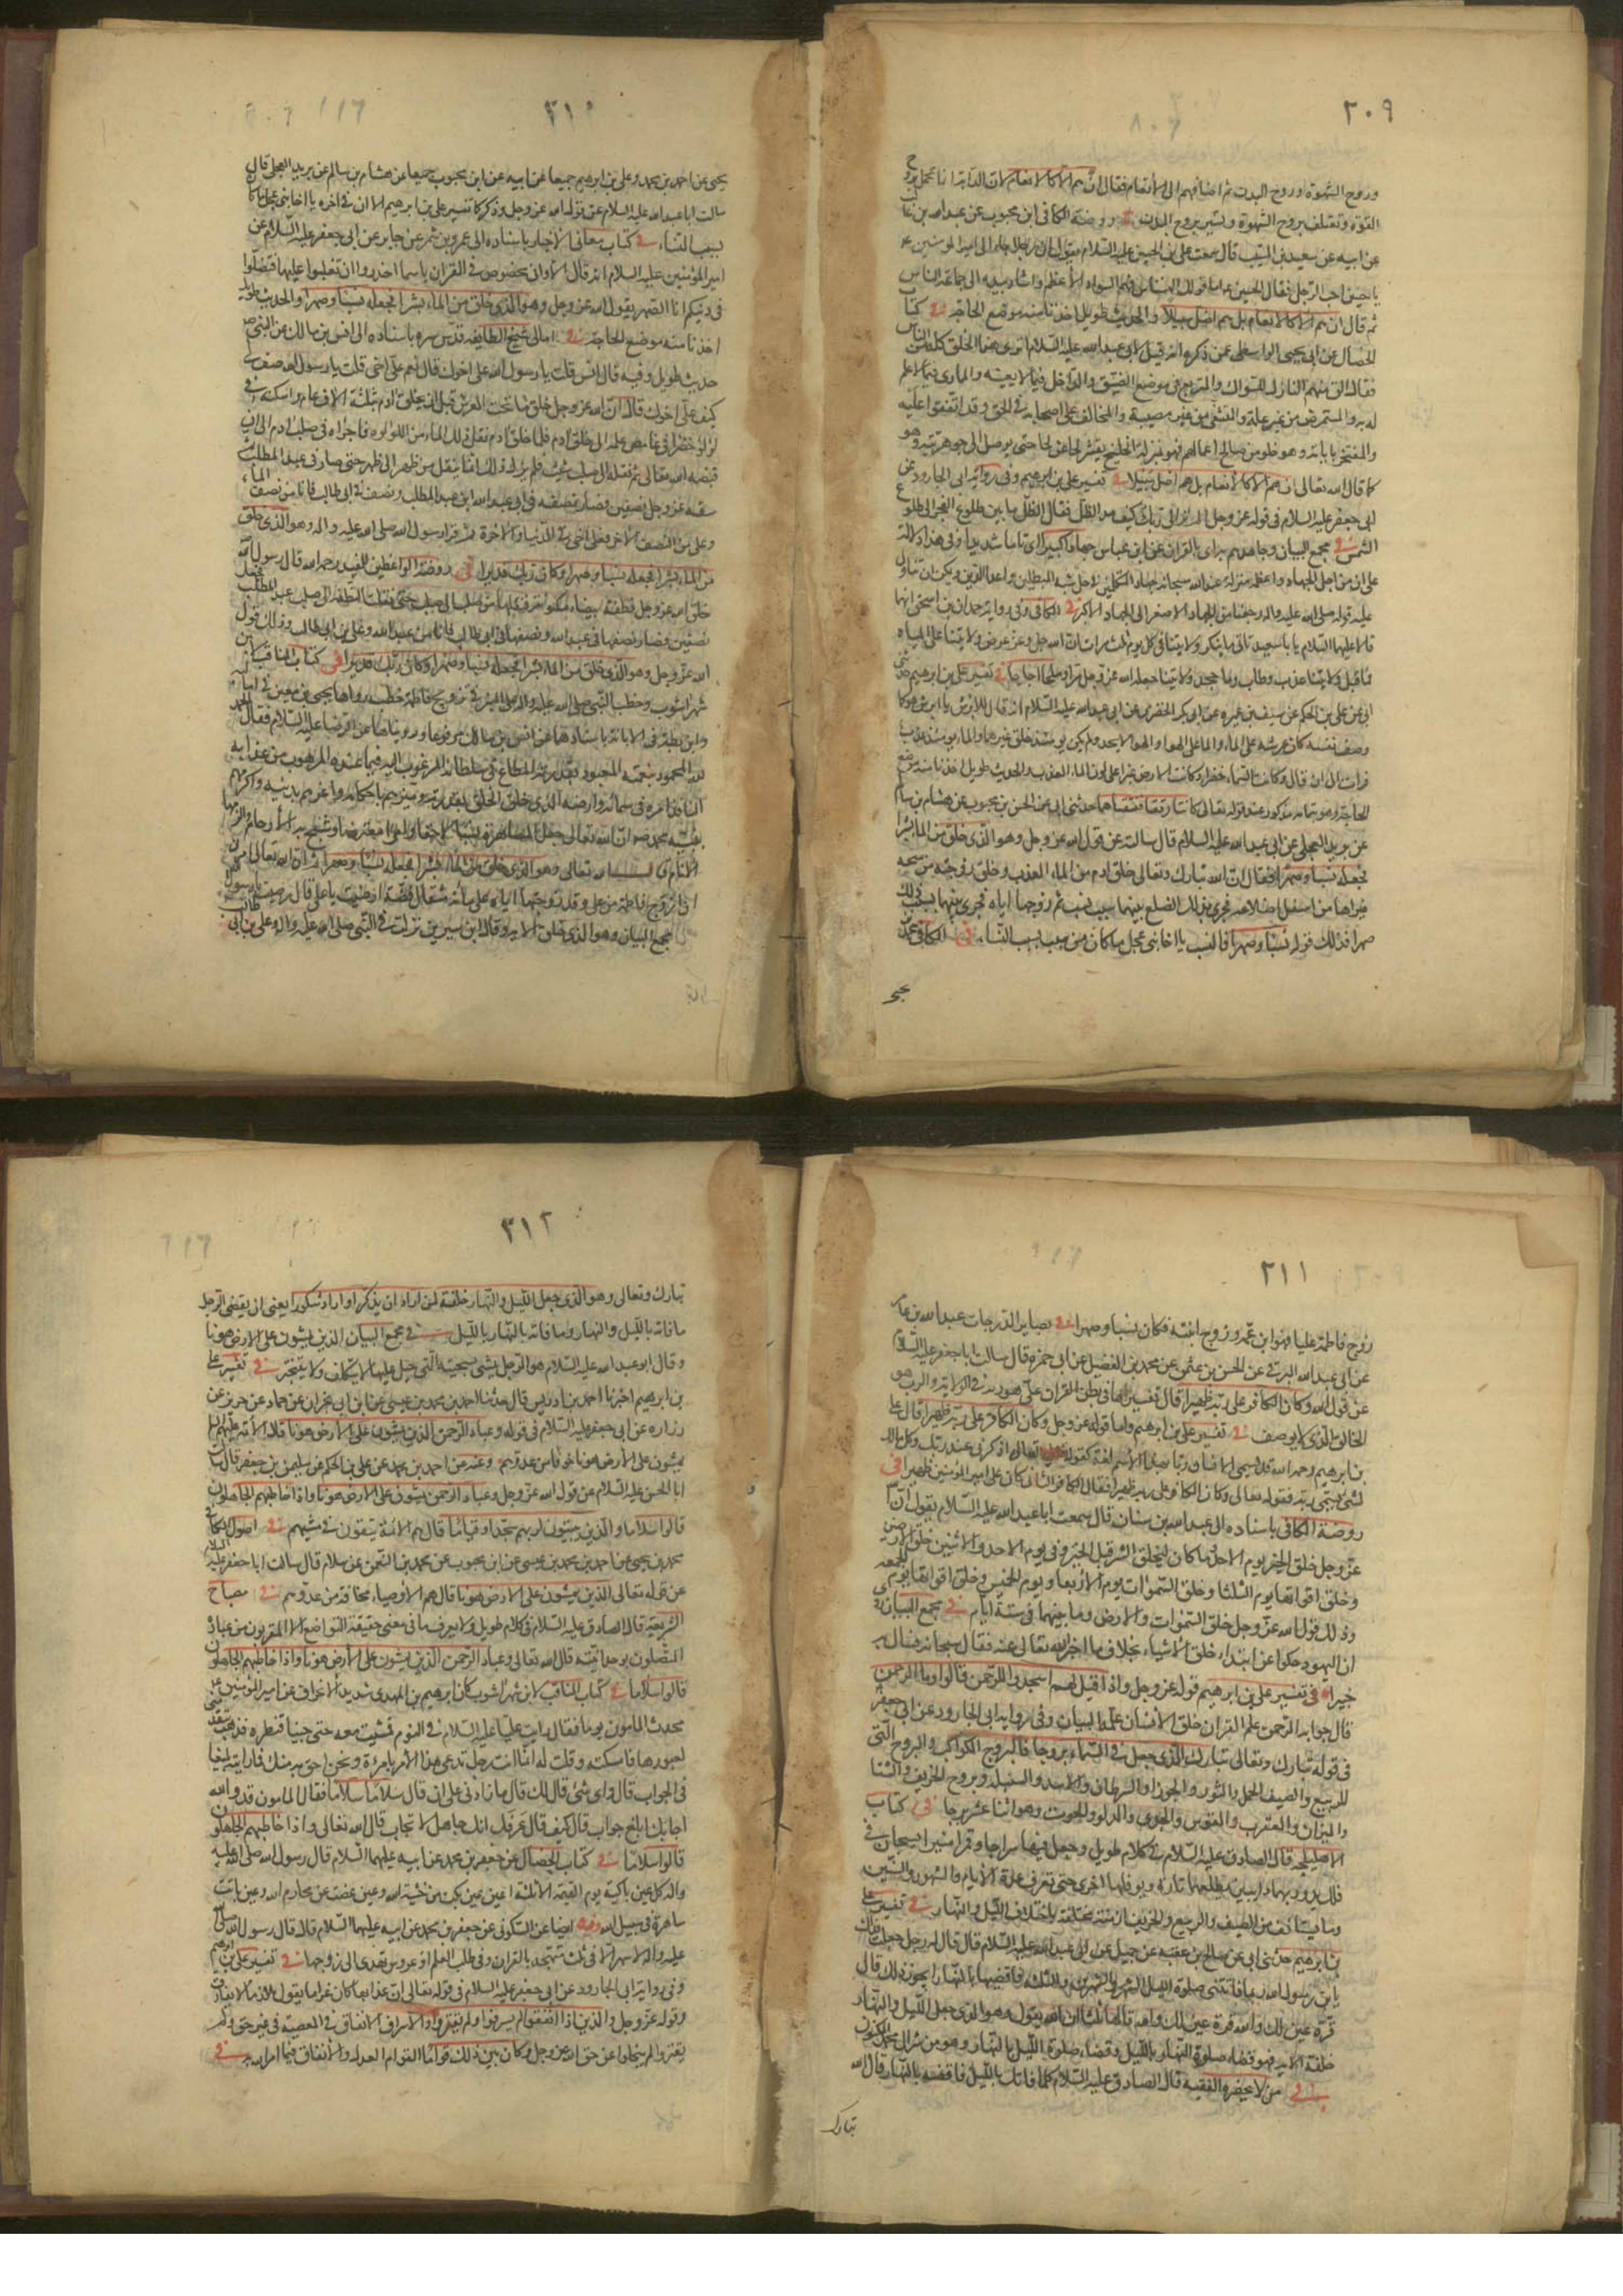 ٣٠٩
وروح الشهوة وروح البدن ثم اضافهم الى الأنعام فقال ان هم الا كالانعام لان الدابة انما تحمل بروح
القوة وتعتلف بروح الشهوة وتسير بروح البدن في روضة الكافي ابن محبوب عن عبد الله بن غالب
عن ابيه عن سعيد بن المسيب قال سمعت علي بن الحسين عليه السلام يقول ان رجلا جاء الى امير المومنين ع
يا حسين اجب الرجل فقال الحسين ع اما قولك النسناس فهم السواد الأعظم واشار بيده الى جماعة الناس
ثم قال ان هم الا كالانعام بل هم اضل سبيلا والحديث طويل اخذنا منه موضع الحاجة في كتاب
الخصال عن ابي يحيى الواسطي عمن ذكره انه قيل لابي عبد الله عليه السلام اترى هذا الخلق كله من الناس
فقال الق منهم التارك للسواك والمتربع في موضع الضيق والداخل فيما لا يعنيه والمماري فيما لا علم
له به والمتمرض من غير علة والمتشعث من غير مصيبة والمخالف على اصحابه في الحق وقد اتفقوا عليه
والمفتخر بابائه وهو خلو من صالح اعمالهم فهو بمنزلة الخلنج يقشر لحا عن لحا حتى يوصل الى جوهريته وهو
كما قال الله تعالى ان هم الا كالأنعام بل هم اضل سبيلا في تفسير علي بن ابرهيم وفي رواية ابي الجارود عن
ابي جعفر عليه السلام في قوله عز وجل الم تر الى ربك كيف مد الظل فقال الظل ما بين طلوع الفجر الى طلوع
الشمس في مجمع البيان وجاهدهم به اى بالقران عن ابن عباس جهادا كبيرا اى تاما شديدا وفي هذا دلالة
على ان من اجل الجهاد واعظمه منزلة عند الله سبحانه جهاد المتكلمين في حل شبه المبطلين واعداء الدين ويمكن ان يتأول
عليه قوله صلى الله عليه واله رجعنا من الجهاد الاصغر الى الجهاد الاكبر في الكافي وفي رواية حمدان بن
قالا عليهما السلام يا با سعيد
فما قبل ولايتنا عذب وطاب وما جحد ولايتنا جعله الله عز وجل مرا وملحا اجاجا في تفسير علي بن ابرهيم حدثني
ابي عن علي بن الحكم عن سيف بن عميرة عن ابي بكر الحضرمي عن ابي عبد الله عليه السلام انه قال للابرش يا ابرش هو كما
وصف نفسه كان عرشه على الماء والماء على الهواء والهواء لا يحد ولم يكن يومئذ خلق غيرهما والماء يومئذ عذب
فرات الى ان قال وكانت السماء خضراء وكانت الارض غبراء على لون الماء العذب والحديث طويل اخذنا منه موضع
الحاجة وهو بتمامه مذكور عند قوله تعالى كانتا رتقا ففتقناهما حدثني ابي عن الحسن بن محبوب عن هشام بن سالم
عن بريد العجلي عن ابي عبد الله عليه السلام قال سالته عن قول الله عز وجل وهو الذي خلق من الماء بشرا
فجعله نسبا وصهرا فقال ان الله تبارك وتعالى خلق ادم من الماء العذب وخلق زوجته من سنخه
فبراها من اسفل اضلاعه فجرى بذلك الضلع بينهما سبب نسب ثم زوجها اياه فجرى بينهما بسبب ذلك
صهرا فذلك قوله نسبا وصهرا فالنسب يا اخا بني عجل ما كان من سبب النساء في الكافي محمد بن
يحيى
٣١٠
يحيى عن احمد بن محمد وعلي بن ابرهيم جميعا عن ابيه عن ابن محبوب جميعا عن هشام بن سالم عن بريد العجلي قال
سالت ابا عبد الله عليه السلام عن قول الله عز وجل وذكر كما تفسير علي بن ابرهيم الا ان في اخره يا اخا بني عجل ما كان
بسبب النساء في كتاب معاني الأخبار باسناده الى عمرو بن شمر عن جابر عن ابي جعفر عليه السلام عن
امير المؤمنين عليه السلام انه قال الا وانى مخصوص في القران باسماء احذروا ان تغلبوا عليها فتضلوا
في دينكم انا الصهر يقول الله عز وجل وهو الذي خلق من الماء بشرا فجعله نسبا وصهرا والحديث طويل
اخذنا منه موضع الحاجة في امالي شيخ الطايفة قدس سره باسناده الى انس بن مالك عن النبي ص
حديث طويل وفيه قال انس قلت يا رسول الله علي اخوك قال نعم علي اخي قلت يا رسول الله صف لي
كيف علي اخوك قال ان الله عز وجل خلق ماء تحت العرش قبل ان يخلق ادم بثلثة الاف عام واسكنه في
لؤلؤة خضراء في غامض علمه الى خلق ادم فلما خلق ادم نقل ذلك الماء من اللؤلؤة فاجراه في صلب ادم الى ان
قبضه الله تعالى ثم نقله الى صلب شيث فلم يزل ذلك الماء ينقل من ظهر الى ظهر حتى صار في عبد المطلب
شقه عز وجل نصفين فصار نصفه في ابي عبد الله ابن عبد المطلب ونصف في ابي طالب فانا من نصف الماء
وعلي من النصف الاخر فعلي اخي في الدنيا والاخرة ثم قرا رسول الله صلى الله عليه واله وهو الذي خلق
من الماء بشرا فجعله نسبا وصهرا وكان ربك قديرا في روضة الواعظين للمفيد رحمه الله قال رسول الله
خلق الله عز وجل نطفة بيضاء مكنونة فنقلها من صلب الى صلب حتى نقلت النطفة الى صلب عبد المطلب فجعل
نصفين فصار نصفها في عبد الله ونصفها في ابي طالب فانا من عبد الله وعلي من ابي طالب وذلك قول
الله عز وجل وهو الذي خلق من الماء بشرا فجعله نسبا وصهرا وكان ربك قديرا في كتاب المناقب لابن
شهراشوب وخطب النبي صلى الله عليه واله على المنبر في تزويج فاطمة خطبة رواها يحيى بن معين في اماليه
وابن بطة في الابانة باسنادهما عن انس بن مالك مرفوعا ورويناها عن الرضا عليه السلام فقال الحمد
لله المحمود بنعمته المعبود بقدرته المطاع في سلطانه المرغوب اليه فيما عنده المرهوب من عذابه
النافذ امره في سمائه وارضه الذي خلق الخلق بقدرته وميزهم باحكامه واعزهم بدينه واكرمهم
بنبيه محمد ص ان الله تعالى جعل المصاهرة نسبا لاحقا وامرا مفترضا وشج بها الأرحام والزمها
الانام قال الله تعالى وهو الذي خلق من الماء بشرا فجعله نسبا وصهرا ثم ان الله تعالى امرني
ان ازوج فاطمة من علي وقد زوجتها اياه على مائة مثقال فضة ارضيت يا علي قال رضيت يا رسول
مجمع البيان وهو الذي خلق الاية وقال ابن سيرين نزلت في النبي صلى الله عليه واله وعلي بن ابي طالب
٣١١
زوج فاطمة عليا فهو ابن عمه وزوج ابنته فكان نسبا وصهرا في بصاير الدرجات عبد الله بن عامر
عن ابي عبد الله البرقي عن الحسن بن عثمن عن محمد بن الفضيل عن ابي حمزة قال سالت ابا جعفر عليه السلام
عن قول الله وكان الكافر على ربه ظهيرا قال تفسيرها في بطن القران علي هو ربه في الولاية والرب هو
الخالق الذي لا يوصف في تفسير علي بن ابرهيم واما قوله عز وجل وكان الكافر على ربه ظهيرا قال علي
بن ابرهيم رحمه الله قد يسمى الانسان ربا بهذا الأسم لغة كقوله تعالى اذكرني عند ربك وكل مالك
لشئ يسمى ربه فقوله تعالى وكان الكافر على ربه ظهيرا فقال الكافر الثاني كان على امير المؤمنين ظهيرا في
روضة الكافي باسناده الى عبد الله بن سنان قال سمعت ابا عبد الله عليه السلام يقول ان الله
عز وجل خلق الخير يوم الاحد وما كان ليخلق الشر قبل الخير وفي يوم الاحد والاثنين خلق الارضين
وخلق اقواتها يوم الثلثا وخلق السموات يوم الأربعا ويوم الخميس وخلق اقواتها يوم الجمعة
وذلك قول الله عز وجل خلق السموات والارض وما بينهما في ستة ايام في مجمع البيان
ان اليهود حكوا عن ابتداء خلق الأشياء بخلاف ما اخبر الله تعالى عنه فقال سبحانه فسال به
خبيرا في تفسير علي بن ابرهيم قوله عز وجل واذا قيل لهم اسجدوا للرحمن قالوا وما الرحمن
قال جوابه الرحمن علم القران خلق الأنسان علمه البيان وفي رواية ابي الجارود عن ابي جعفر
في قوله تبارك وتعالى تبارك الذي جعل في السماء بروجا فالبروج الكواكب والبروج التي
للربيع والصيف الحمل والثور والجوزا والسرطان والاسد والسنبلة وبروج الخريف والشتا
والميزان والعقرب والقوس والجدي والدلو والحوت وهي اثنا عشر برجا في كتاب
الاهليلجة قال الصادق عليه السلام في كلام طويل وجعل فيها سراجا وقمرا منيرا يسبحان في
فلك يدور بهما دايبين يطلعهما تارة ويوفلهما اخرى حتى تعرف عدة الأيام والشهور والسنين
وما يستانف من الصيف والربيع والخريف ازمنة مختلفة باختلاف الليل والنهار في تفسير علي
بن ابرهيم حدثني ابي عن صالح بن عقبة عن جميل عن ابي عبد الله عليه السلام قال قال له رجل جعلت فداك
يا بن رسول الله ربما فاتتني صلوة الليل الشهر والشهرين والثلثة فاقضيها بالنهار ايجوز ذلك قال
قرة عين لك والله قرة عين لك والله قالها ثلثا ان الله يقول وهو الذي جعل الليل والنهار
خلفة الاية فهو قضاء صلوة النهار بالليل وقضاء صلوة الليل بالنهار وهو من سر ال محمد المكنون
في من لا يحضره الفقيه قال الصادق عليه السلام كلما فاتك بالليل فاقضه بالنهار قال الله
تبارك
٣١٢
تبارك وتعالى وهو الذي جعل الليل والنهار خلفة لمن اراد ان يذكر او اراد شكورا يعني ان يقضي الرجل
ما فاته بالليل بالنهار وما فاته بالنهار بالليل في مجمع البيان الذين يمشون على الارض هونا
وقال ابو عبد الله عليه السلام هو الرجل يمشي بسجيته التي جبل عليها لا يتكلف ولا يتبختر في تفسير علي
بن ابرهيم اخبرنا احمد بن ادريس قال حدثنا احمد بن محمد بن عيسى عن ابن ابي نجران عن حماد عن حريز عن
زرارة عن ابي جعفر عليه السلام في قوله وعباد الرحمن الذين يمشون على الأرض هونا قال الأئمة عليهم السلام
يمشون على الأرض هونا خوفا من عدوهم وعنه عن احمد بن محمد عن علي بن الحكم عن سليمن بن جعفر قال سالت
ابا الحسن عليه السلام عن قول الله عز وجل وعباد الرحمن الذين يمشون على الارض هونا واذا خاطبهم الجاهلون
قالوا سلاما والذين يبيتون لربهم سجدا وقياما قال هم الائمة يتقون في مشيهم في اصول الكافي
محمد بن يحيى عن احمد بن محمد بن عيسى عن ابن محبوب عن محمد بن النعمن عن سلام قال سالت ابا جعفر عليه السلام
عن قوله تعالى الذين يمشون على الارض هونا قال هم الأوصياء مخافة من عدوهم في مصباح
الشريعة قال الصادق عليه السلام في كلام طويل ولا يعرف ما في معنى حقيقة التواضع الا المقربون من عباده
المتصلون بوحدانيته قال الله تعالى وعباد الرحمن الذين يمشون على الأرض هونا واذا خاطبهم الجاهلون
قالوا سلاما في كتاب المناقب لابن شهراشوب كان ابرهيم بن المهدي شديد الأنحراف عن امير المؤمنين ع
يحدث المأمون يوما فقال رايت عليا عليه السلام في النوم فمشيت معه حتى جئنا قنطرة فذهب يتقدمني
لعبورها فامسكته وقلت له انما انت رجل تدعي هذا الأمر بامرءة ونحن احق به منك فما رايته بليغا
في الجواب قال واي شئ قال لك قال ما زادني على ان قال سلاما سلاما فقال المامون قد والله
اجابك ابلغ جواب قال كيف قال عرفك انك جاهل لا تجاب قال الله تعالى واذا خاطبهم الجاهلون
قالوا سلاما في كتاب الخصال عن جعفر بن محمد عن ابيه عليهما السلام قال رسول الله صلى الله عليه
واله كل عين باكية يوم القيمة الا ثلثة اعين عين بكت من خشية الله وعين غضت عن محارم الله وعين باتت
ساهرة في سبيل الله وفيه ايضا عن السكوني عن جعفر بن محمد عن ابيه عليهما السلام قال قال رسول الله صلى الله
عليه واله لا سهر الا في ثلث تهجد بالقران وفي طلب العلم او عروس تهدى الى زوجها في تفسير علي بن ابرهيم
وفي رواية ابي الجارود عن ابي جعفر عليه السلام في قوله تعالى ان عذابها كان غراما يقول ملازما لا يفارق
وقوله عز وجل والذين اذا انفقوا لم يسرفوا ولم يقتروا والأسراف الأنفاق في المعصية في غير حق ولم
يقتروا لم يبخلوا عن حق الله عز وجل وكان بين ذلك قواما القوام العدل والأنفاق فيما امر الله به في